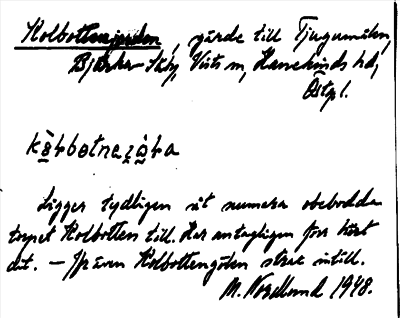 Kolbottenjorden, gärde till Tjugumålen,
Björke-Säby, Vists sn, Hanekinds hd,
Östgl.
Ligger tydligen åt numera obebodda
torpet Kolbotten till. Har antagligen förr hört
dit. — Jfr även Kolbottengölen strax intill.
M. Nordlund 1948.